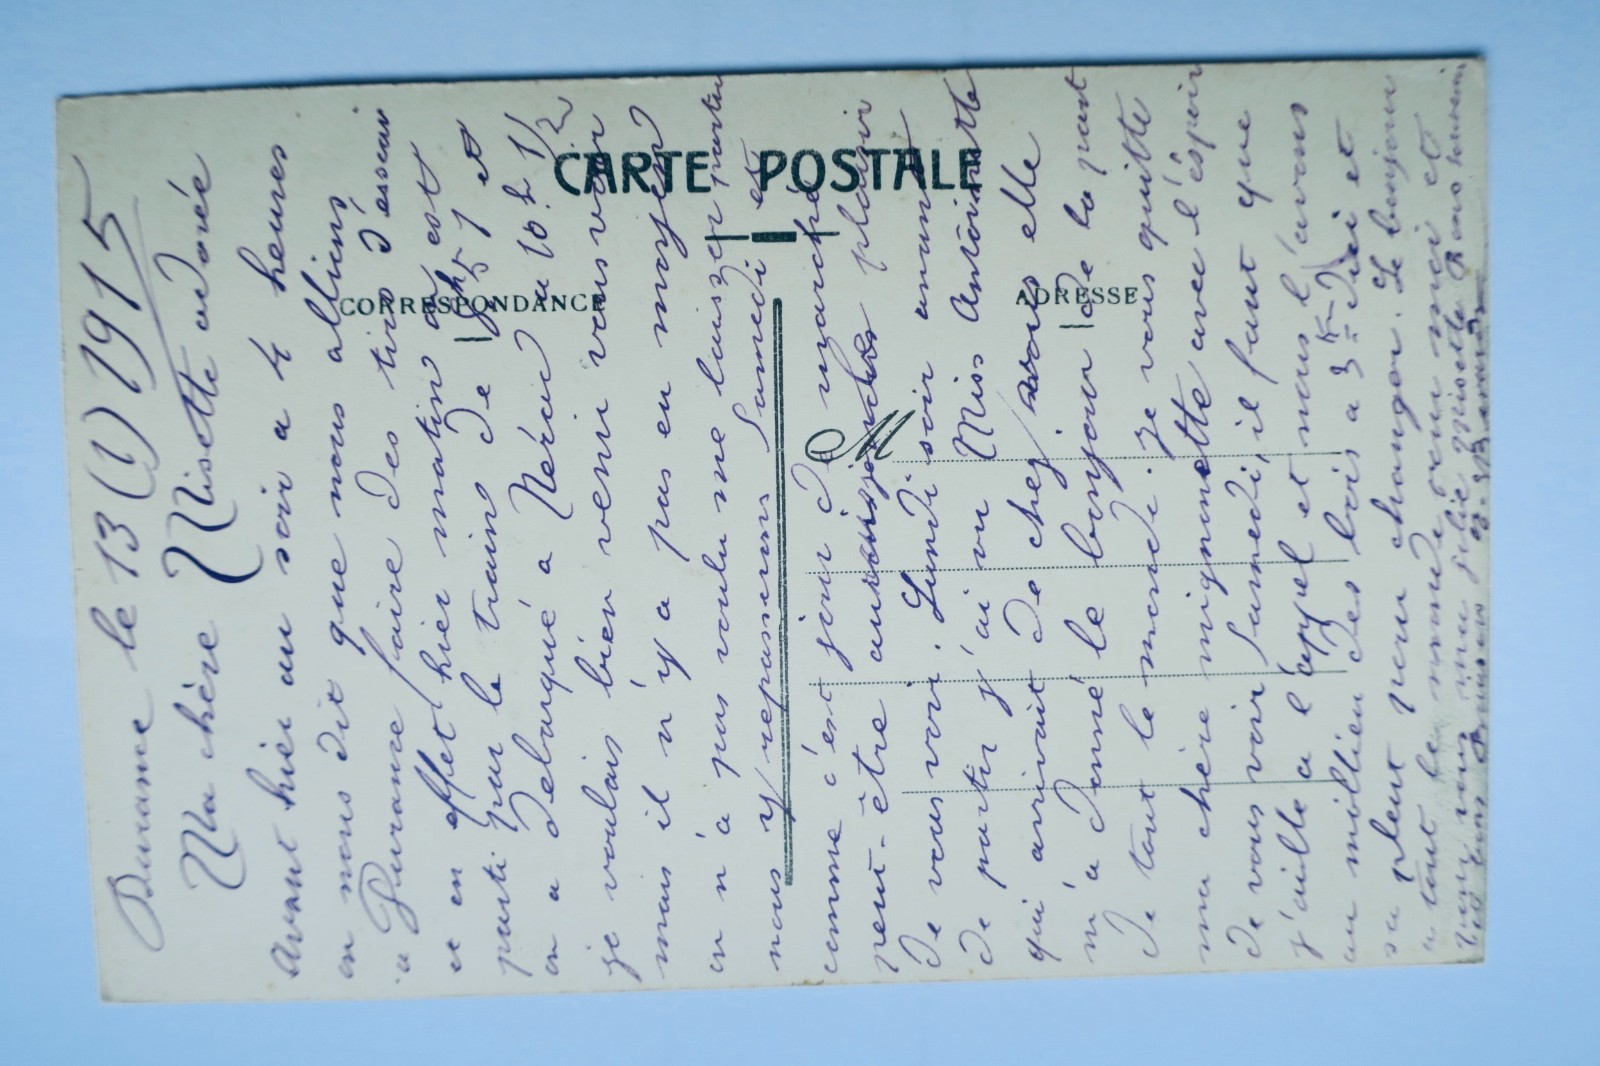 CARTE POSTALE
CORRESPONDANCE
ADRESSE
M
Durance le 13 (1) 1915
Ma chère Nisette adorée
Avant hier au soir a 4 heures
on nous dit que nous allions
a Durance faire des tirs d'essai
et en effet hier matin on est
parti par le train de 7 et
on a debarqué a Nérac a 10 h 1/2
je voulais bien venir vous voir
mais il n'y a pas eu moyen
on n'a pas voulu me laisser partir
nous y repasserons Samedi et
comme c'est jour de marché
peut-être aurais je le plaisir
de vous voir. Lundi soir avant
de partir j'ai vu Miss Antoinette
qui arrivait de chez vous elle
m'a donné le bonjour de la part
de tout le monde. Je vous quitte
ma chère mignonette avec l'espoir
de vous voir Samedi, il faut que
j'aille a l'appel et nous l'avons
au millieu des bois a 3 K d'ici et
sa pleut pour changer. Le bonjour
a tout le monde